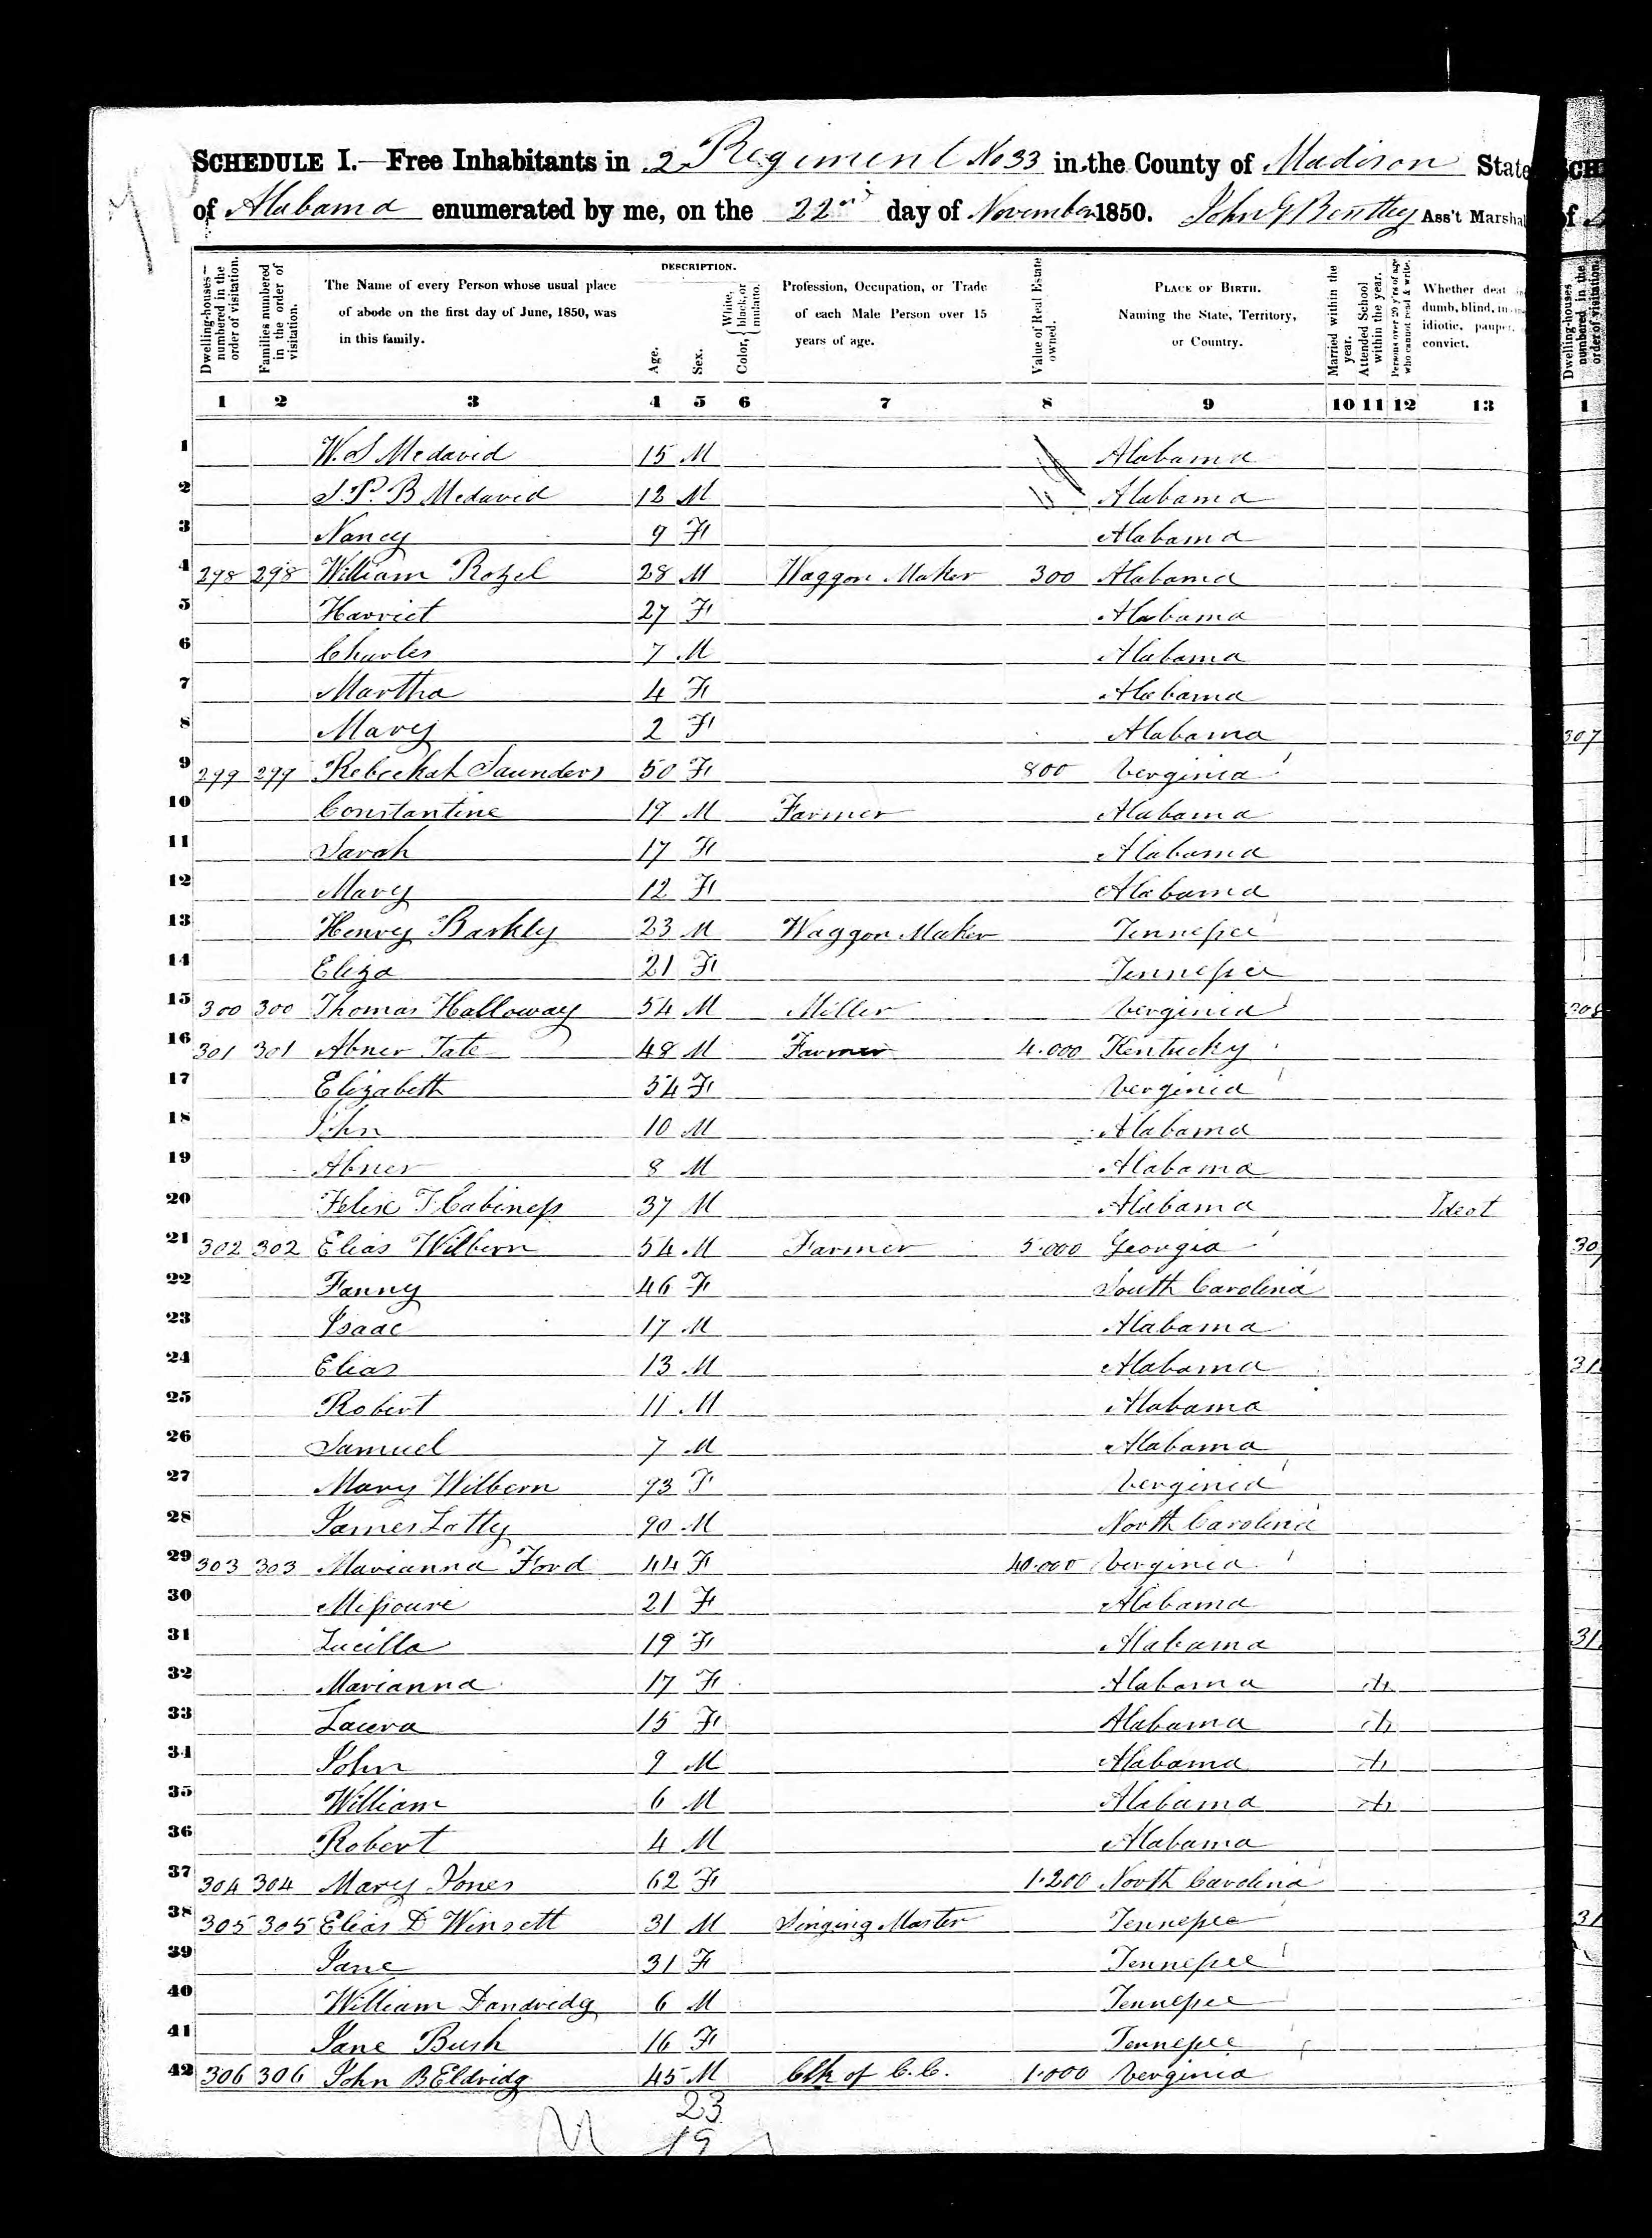 SCHEDULE I.—Free Inhabitants in 2 Regiment No 33 in the County of Madison State
of Alabama enumerated by me, on the 22nd day of November 1850. John G Bentley Ass't Marshal
Dwelling-houses—numbered in the order of visitation.
Families numbered in the order of visitation.
The Name of every Person whose usual place of abode on the first day of June, 1850, was in this family.
DESCRIPTION.
Age.
Sex.
Color, White, black, or mulatto.
Profession, Occupation, or Trade of each Male Person over 15 years of age.
Value of Real Estate owned.
PLACE OF BIRTH. Naming the State, Territory, or Country.
Married within the year.
Attended School within the year.
Persons over 20 y'rs of age who cannot read & write.
Whether deaf dumb, blind, idiotic, pauper, convict.
1 2 3 4 5 6 7 8 9 10 11 12 13
1 W. S Medavid 15 M Alabama
2 J. P. B Medavid 12 M Alabama
3 Nancy 9 F Alabama
4 298 298 William Rozel 28 M Waggon Maker 300 Alabama
5 Harriet 27 F Alabama
6 Charles 7 M Alabama
7 Martha 4 F Alabama
8 Mary 2 F Alabama
9 299 299 Rebeckah Saunders 50 F 800 Verginia
10 Constantine 19 M Farmer Alabama
11 Sarah 17 F Alabama
12 Mary 12 F Alabama
13 Henry Barkly 23 M Waggon Maker Tennessee
14 Eliza 21 F Tennessee
15 300 300 Thomas Halloway 54 M Miller Verginia
16 301 301 Abner Tate 48 M Farmer 4.000 Kentucky
17 Elizabeth 54 F Verginia
18 John 10 M Alabama
19 Abner 8 M Alabama
20 Felix T Cabiness 37 M Alabama Ideot
21 302 302 Elias Wilbern 54 M Farmer 5.000 Georgia
22 Fanny 46 F South Carolina
23 Isaac 17 M Alabama
24 Elias 13 M Alabama
25 Robert 11 M Alabama
26 Samuel 7 M Alabama
27 Mary Wilbern 93 F Verginia
28 James Latty 90 M North Carolina
29 303 303 Marianna Ford 44 F 40.000 Verginia
30 Missoure 21 F Alabama
31 Lucilla 19 F Alabama
32 Marianna 17 F Alabama
33 Laura 15 F Alabama
34 John 9 M Alabama
35 William 6 M Alabama
36 Robert 4 M Alabama
37 304 304 Mary Jones 62 F 1.200 North Carolina
38 305 305 Elias D Winsett 31 M Singing Master Tennessee
39 Jane 31 F Tennessee
40 William Dandridg 6 M Tennessee
41 Jane Bush 16 F Tennessee
42 306 306 John B Eldridg 45 M Clk of C.C. 1.000 Verginia
23
19